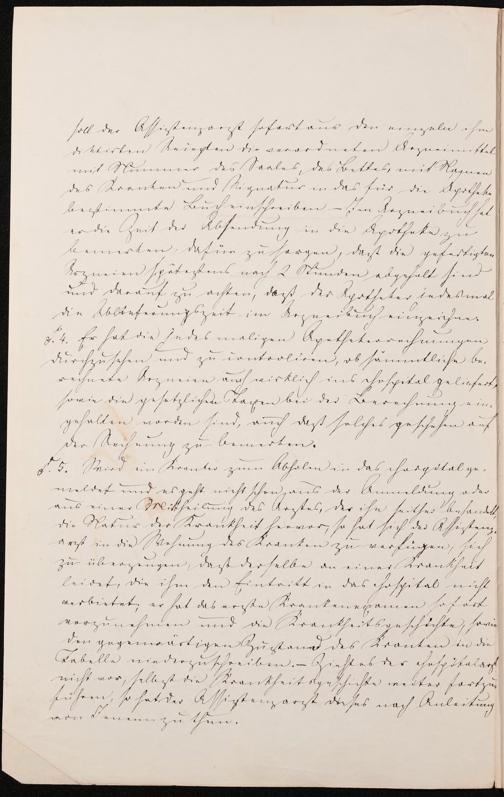 soll der Assistenzarzt sofort aus den einzeln ihm
diktirten Recepten die verordneten Arzneimittel
mit Nummer des Saales, des Bettes, mit Namen
des Kranken und Signatur in das für die Apotheke
bestimmte Buch einschreiben – Im Arzneibuch hat
er die Zeit der Absendung in die Apotheke zu
bemerken, dafür zu sorgen, daß die gefertigten
Arzneien spätestens nach 2 Stunden abgeholt sind
und darauf zu achten, daß der Apotheker jedesmal
die Ablieferungszeit im Arzneibuch einzeichne.
§. 4. Er hat die jedesmaligen Apothekerrechnungen
durchzusehen und zu controliren, ob sämmtliche be-
rechnete Arzneien auch wirklich ins Hospital geliefert,
sowie die gesetzlichen Taxen bei der Berechnung ein-
gehalten worden sind, auch daß solches geschehen auf
der Rechnung zu bemerken.
§. 5. Wird ein Kranker zum Abholen in das Hospital ge-
meldet und es geht nicht schon aus der Anmeldung oder
aus einer Mittheilung des Arztes, der ihn seither behandelt
die Natur der Krankheit hervor, so hat sich der Assistenz-
arzt in die Wohnung des Kranken zu verfügen, sich
zu überzeugen, daß derselbe an einer Krankheit
leidet, die ihm den Eintritt in das Hospital nicht
verbietet, er hat das erste Krankenexamen sofort
vorzunehmen und die Krankheitsgeschichte, sowie
den gegenwärtigen Zustand des Kranken in die
Tabelle niederzuschreiben. – Zieht es der Hospitalarzt
nicht vor, selbst die Krankheitsgeschichte weiter fortzu-
führen, so hat der Assistenzarzt dieses nach Anleitung
von Jenem zu thun.